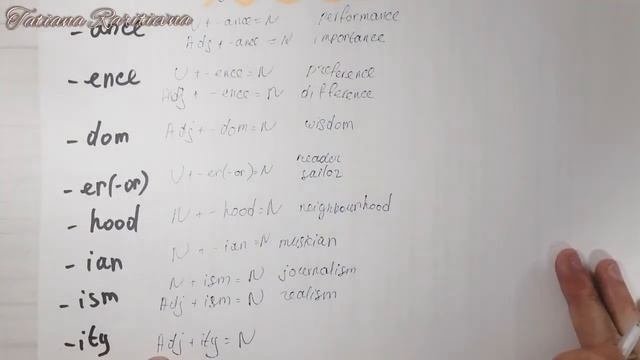 Tatiana
- ance V + -ance = N performance
Adj + -ance = N importance
- ence V + -ence = N preference
Adj + -ence = N difference
- dom Adj + -dom = N wisdom
- er(-or) V + -er(-or) = N reader
sailor
- hood N + -hood = N neighbourhood
- ian N + -ian = N musician
- ism N + ism = N journalism
Adj + ism = N realism
- ity Adj + ity = N